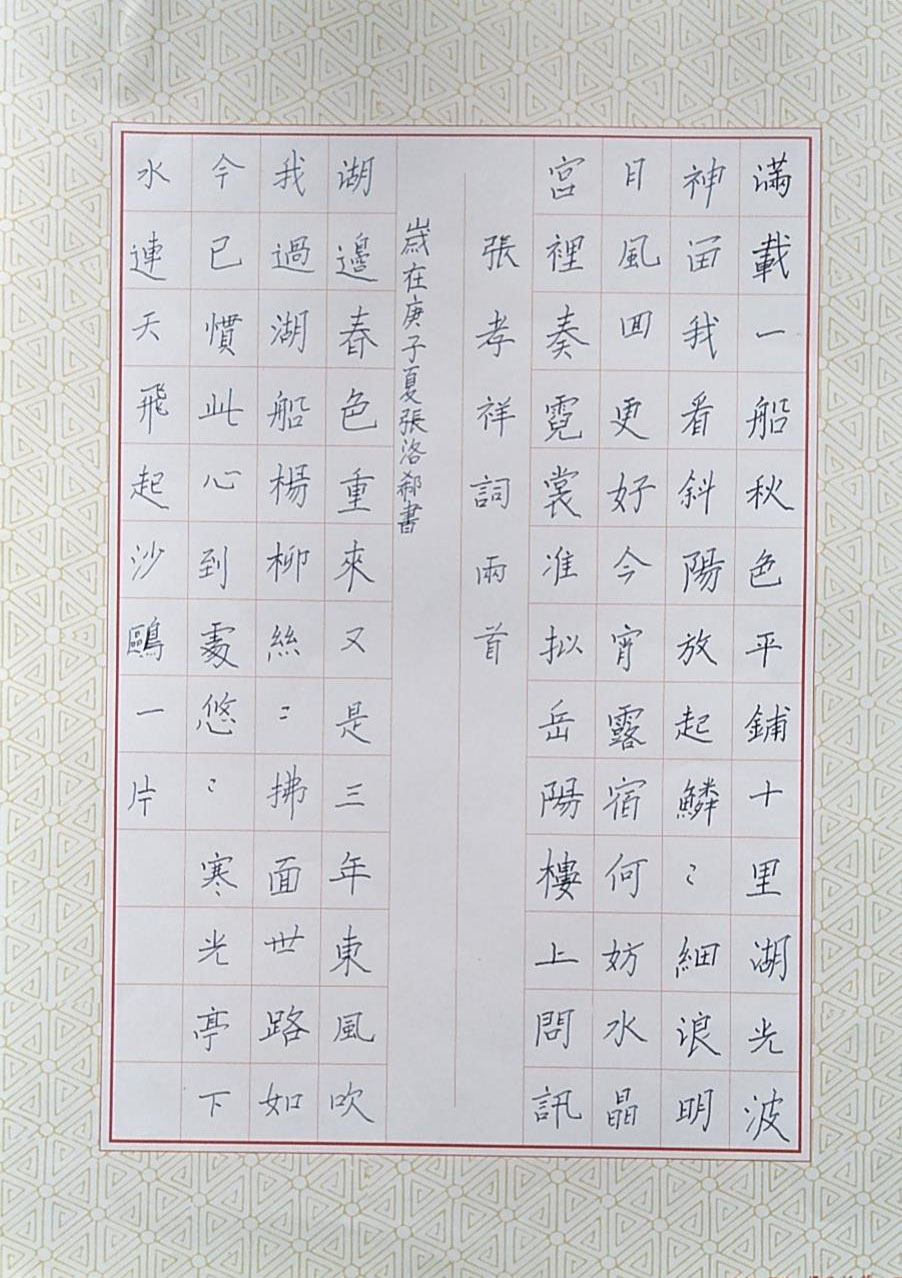 滿載一船秋色平鋪十里湖光波
神留我看斜陽放起鱗〻細浪明
日風囬更好今宵露宿何妨水晶
宮裡奏霓裳准拟岳陽樓上問訊
張孝祥詞兩首
歲在庚子夏張洛書
湖邊春色重來又是三年東風吹
我過湖船楊柳絲〻拂面世路如
今已慣此心到處悠〻寒光亭下
水連天飛起沙鷗一片